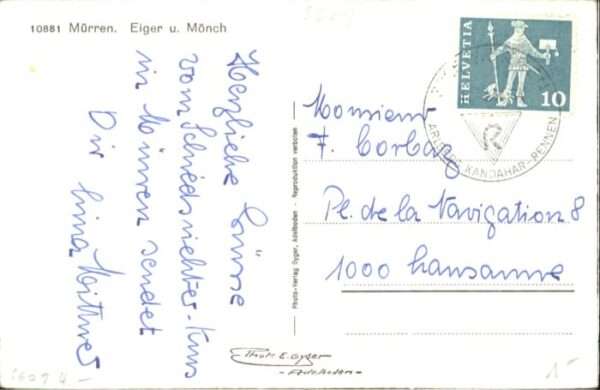 10881 Mürren. Eiger u. Mönch
Herzliche Grüsse
vom Schiedsrichter-Kurs
in Mürren sendet
Dir
HELVETIA
10
ARLBERG-KANDAHAR-RENNEN
Photo-Verlag Gyger, Adelboden - Reproduktion verboten
Monsieur
F. Corbaz
Pl. de la Navigation 8
1000 Lausanne
Photo E. Gyger
-Adelboden-